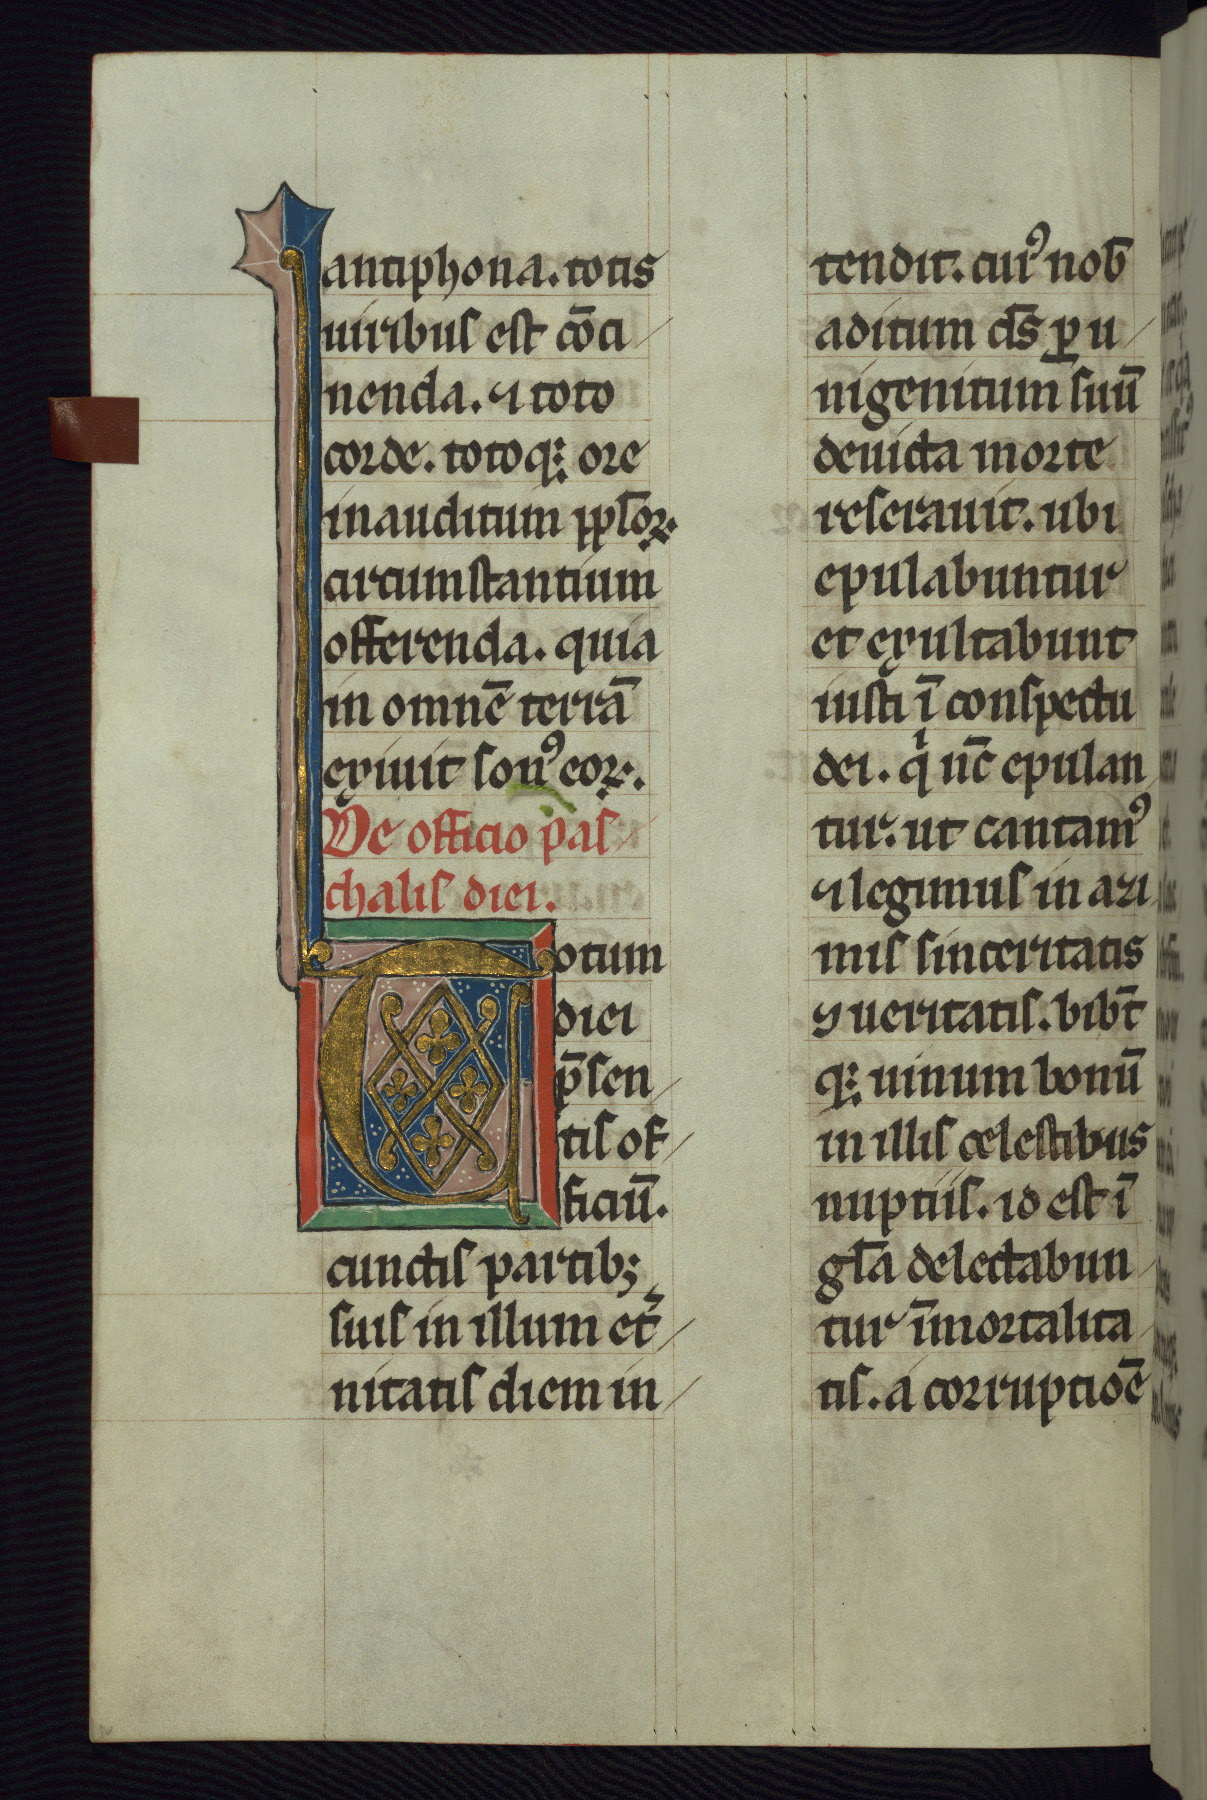 antiphona. totis
uiribus est co̅ci
nenda. ⁊ toto
corde. totoq; ore
in auditum
circumstantium
offerenda. quia
in omne̅ terra̅
exiuit son᷒ eoꝝ.
De officio pas
chalis diei.
Totum
diei
p̅sen
tis of
ficiu̅.
cunctis partib;
suis in illum et̾
nitatis diem in
tendit. cui᷒ nob̅
aditum ds̅ ꝑ u
nigenitum suu̅
deuicta morte
reserauit. ubi
epulabuntur
et exultabunt
iusti i̅ conspectu
dei. qͥ nc̅ epulan
tur. ut cantam᷒
⁊ legimus in azi
mis sinceritatis
⁊ ueritatis. bibt̅
q; uinum bonu̅
in illis celestibus
nuptiis. id est i̅
gl̅a delectabun
tur i̅mortalita
tis. a corruptioe̅